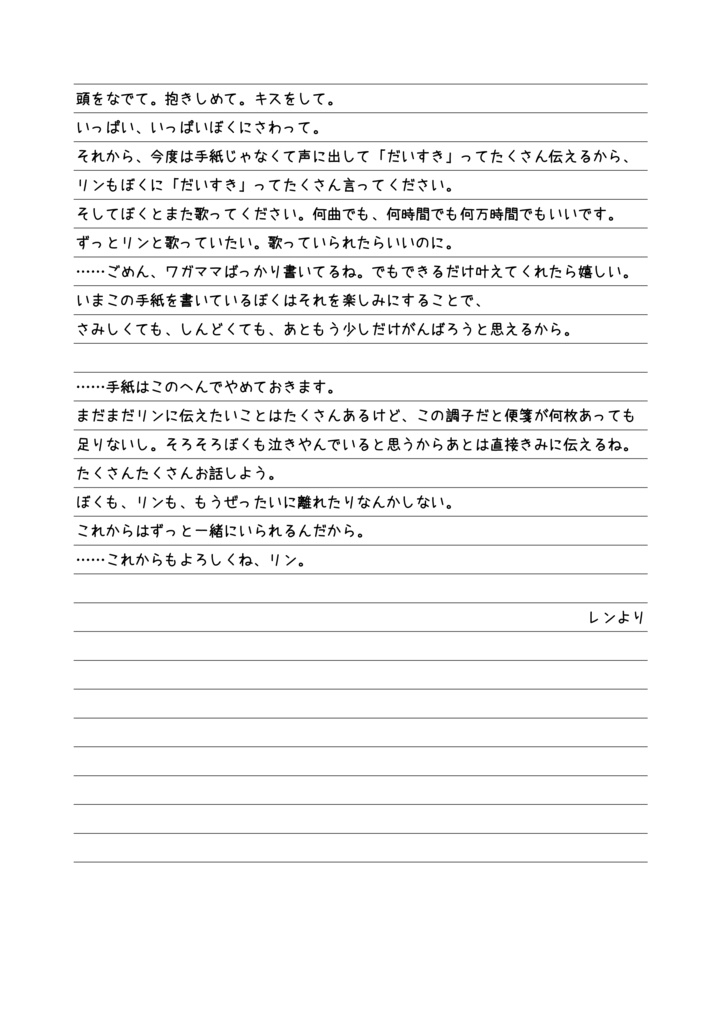 頭をなでて。抱きしめて。キスをして。
いっぱい、いっぱいぼくにさわって。
それから、今度は手紙じゃなくて声に出して「だいすき」ってたくさん伝えるから、
リンもぼくに「だいすき」ってたくさん言ってください。
そしてぼくとまた歌ってください。何曲でも、何時間でも何万時間でもいいです。
ずっとリンと歌っていたい。歌っていられたらいいのに。
……ごめん、ワガママばっかり書いてるね。でもできるだけ叶えてくれたら嬉しい。
いまこの手紙を書いているぼくはそれを楽しみにすることで、
さみしくても、しんどくても、あともう少しだけがんばろうと思えるから。
……手紙はこのへんでやめておきます。
まだまだリンに伝えたいことはたくさんあるけど、この調子だと便箋が何枚あっても
足りないし。そろそろぼくも泣きやんでいると思うからあとは直接きみに伝えるね。
たくさんたくさんお話しよう。
ぼくも、リンも、もうぜったいに離れたりなんかしない。
これからはずっと一緒にいられるんだから。
……これからもよろしくね、リン。
レンより